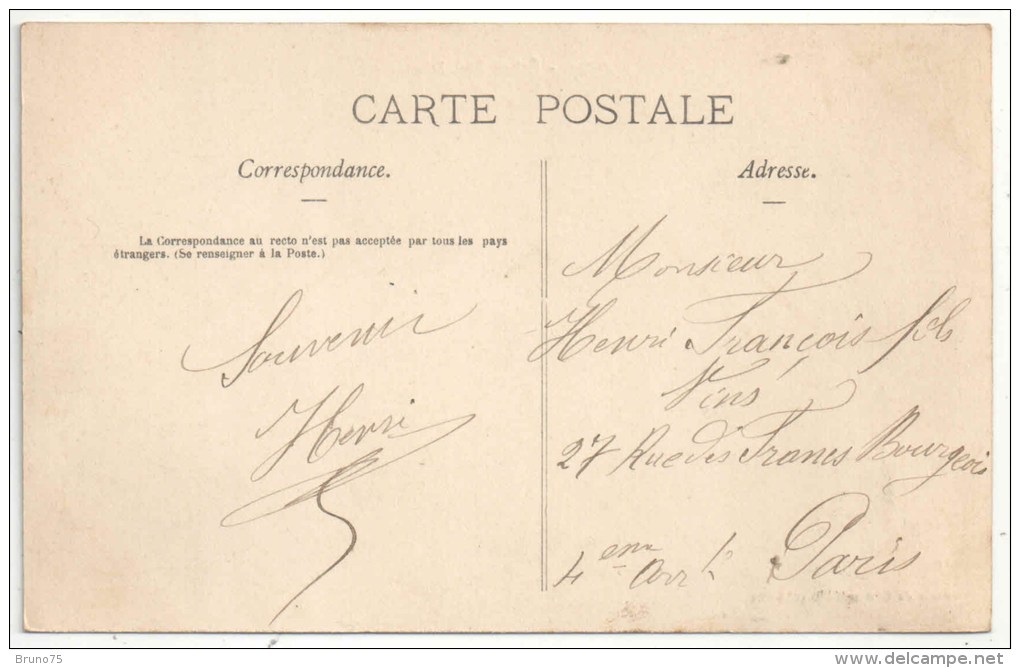 CARTE POSTALE
Correspondance.
La Correspondance au recto n'est pas acceptée par tous les pays
étrangers. (Se renseigner à la Poste.)
Souvenir
Henri
Adresse.
Monsieur
Henri François fils
Vins
27 Rue des Francs Bourgeois
4em Arrt Paris
Bruno75
www.delcampe.net